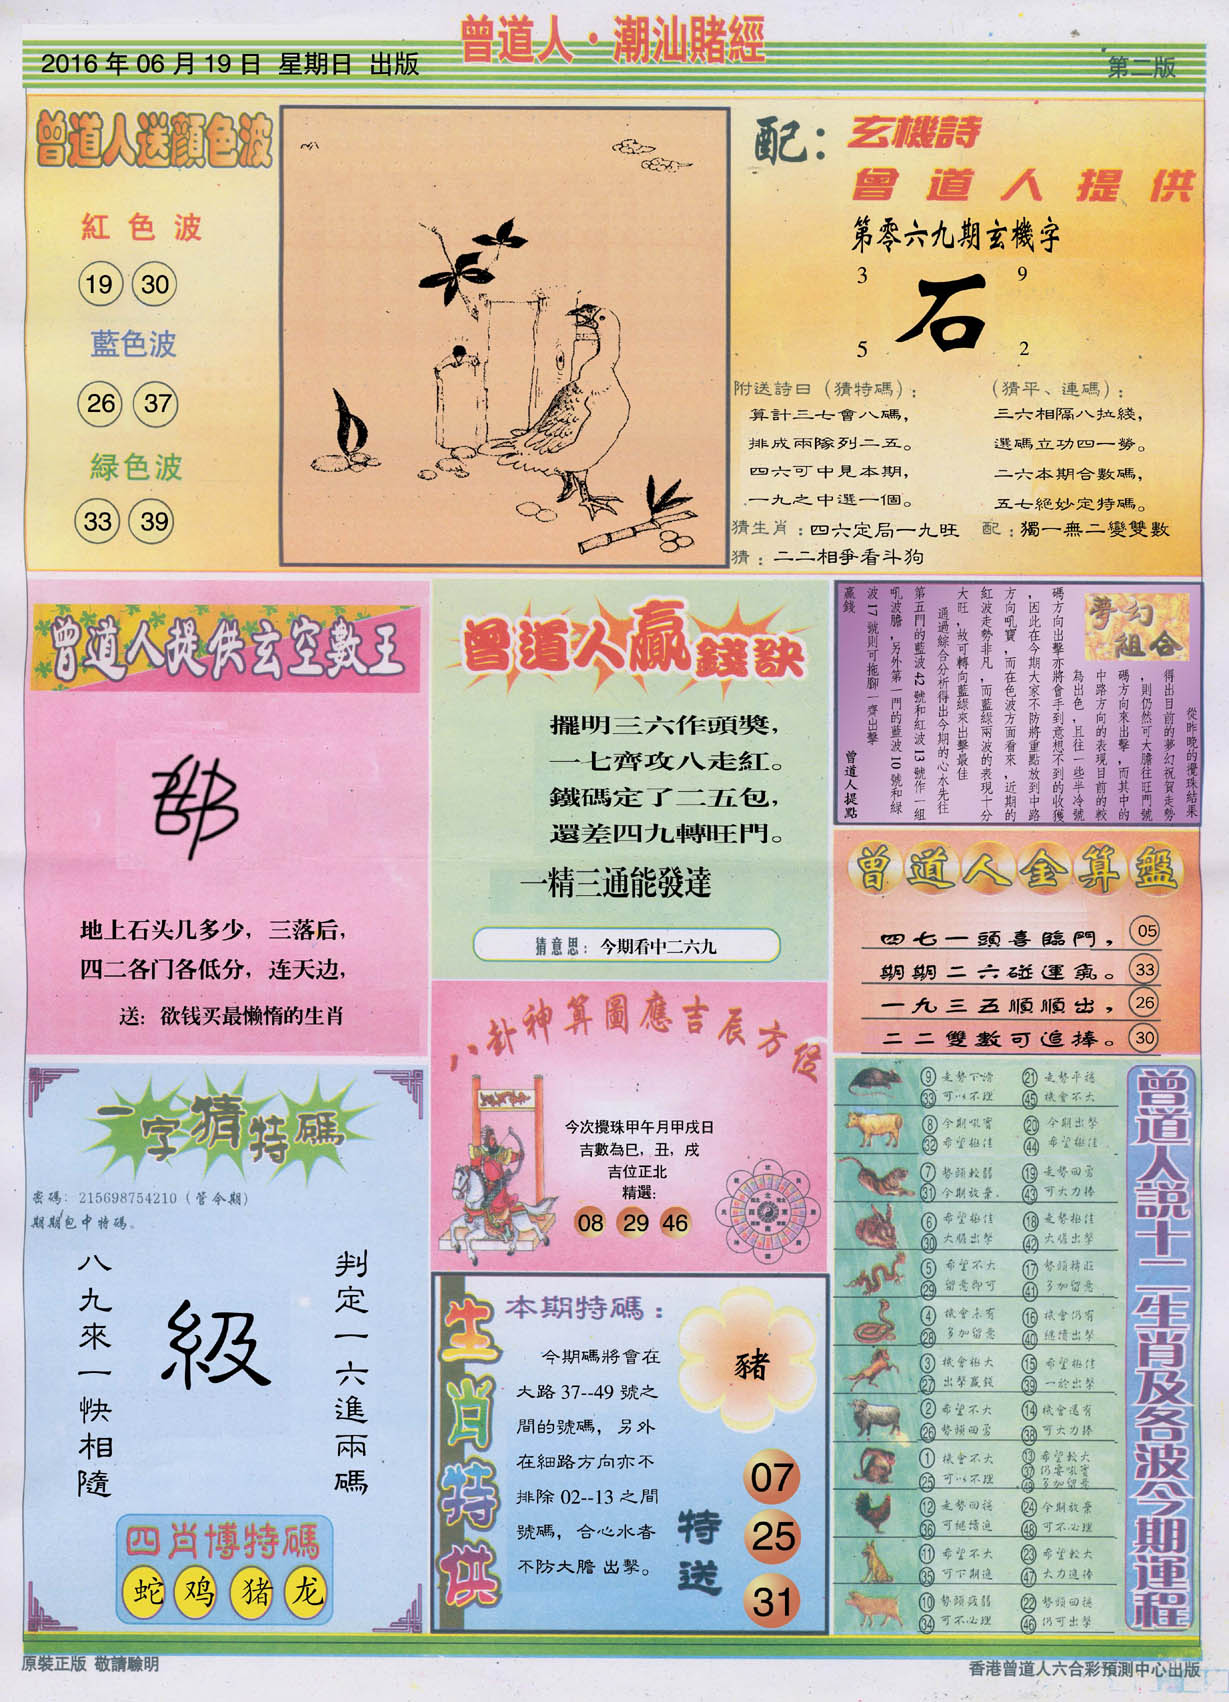 曾道人·潮汕賭經
2016年06月19日 星期日 出版
第二版
曾道人送顏色波
紅色波
19 30
藍色波
26 37
緑色波
33 39
配：玄機詩
曾道人提供
第零六九期玄機字
3 9
石
5 2
附送詩曰（猜特碼）：
算計三七會八碼，
排成兩隊列二五。
四六可中見本期，
一九之中選一個。
（猜平、連碼）：
三六相隔八拉綫，
選碼立功四一勞。
二六本期合數碼，
五七絕妙定特碼。
猜生肖：四六定局一九旺
配：獨一無二變雙數
猜：二二相爭看斗狗
曾道人提供玄空數王
地上石头几多少，三落后，
四二各门各低分，连天边，
送：欲钱买最懒惰的生肖
曾道人贏錢訣
擺明三六作頭獎，
一七齊攻八走紅。
鐵碼定了二五包，
還差四九轉旺門。
一精三通能發達
猜意思：今期看中二六九
夢幻組合
從昨晚的攪珠結果
得出目前的夢幻祝賀走勢
，則仍然可大膽往旺門號
碼方向來出擊，而其中的
中路方向的表現目前的較
為出色，且往一些半冷號
碼方向出擊亦將會手到意想不到的收獲
，因此在今期大家不防將重點放到中路
方向吼寶，而在色波方面看來，近期的
紅波走勢非凡，而藍綠兩波的表現十分
大旺，故可轉向藍綠來出擊最佳
通過綜合分析得出今期的心水先往
第五門的藍波42號和紅波13號作一組
吼波膽，另外第一門的藍波10號和綠
波17號則可拖腳一齊出擊
贏錢
曾道人提點
曾道人金算盤
四七一頭喜臨門， 05
期期二六碰運氣。 33
一九三五順順出， 26
二二雙數可追捧。 30
八卦神算圖應吉辰方位
今次攪珠甲午月甲戌日
吉數為巳，丑，戌
吉位正北
精選:
08 29 46
一字猜特碼
密碼：215698754210（管令期）
期期包中特碼。
判定一六進兩碼
級
八九來一快相隨
四肖博特碼
蛇 鸡 猪 龙
生肖特供
本期特碼：
今期碼將會在
大路 37--49 號之
間的號碼，另外
在細路方向亦不
排除 02--13 之間
號碼，合心水者
不防大膽 出擊。
豬
特送
07
25
31
曾道人説十二生肖及各波今期運程
9 走勢下滑 21 走勢平穩
33 可以不理 45 機會不大
8 今期吼實 20 今期出擊
32 希望極佳 44 希望極佳
7 勢頭較弱 19 勢頭回勇
31 今期放棄。 43 可大力捧
6 希望極佳 18 走勢極佳
30 大膽出擊 42 大膽出擊
5 希望不大 17 勢頭轉旺
29 留意即可 41 多加留意
4 機會未有 16 機會仍有
28 多加留意 40 繼續出擊
3 機會極大 15 希望極佳
27 出擊贏錢 39 一於出擊
2 希望不大 14 機會還有
26 勢頭回勇 38 可大力捧
1 機會不大 13 希望較大
25 可以不理 37 仍要吼實
49 多加留意
12 走勢回穩 24 今期放棄
36 可繼續追 48 可不必理
11 希望不大 23 希望較大
35 可下期追 47 大力追捧
10 勢頭疲弱 22 勢頭回穩
34 可不必理 46 仍可出擊
原裝正版 敬請驗明
香港曾道人六合彩預測中心出版